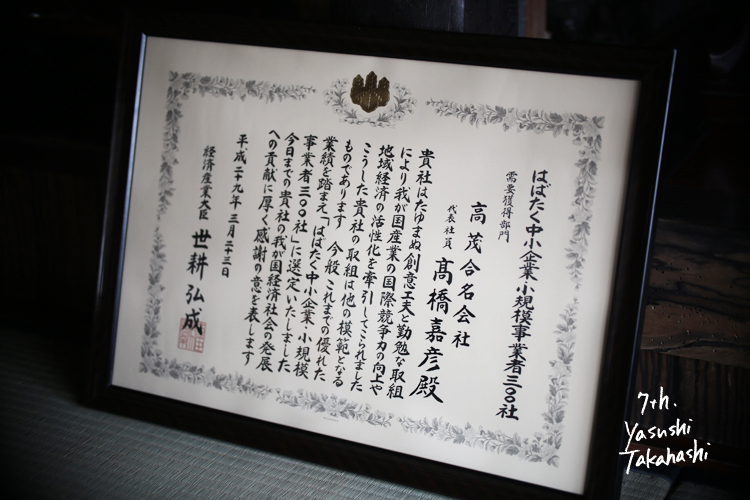 はばたく中小企業・小規模事業者三〇〇社
需要獲得部門
高茂合名会社
代表社員 髙橋嘉彦殿
貴社はたゆまぬ創意工夫と勤勉な取組
により我が国産業の国際競争力の向上や
地域経済の活性化を牽引してこられました
こうした貴社の取組は他の模範となる
ものであります 今般 これまでの優れた
業績を踏まえ「はばたく中小企業・小規模
事業者三〇〇社」に選定いたしました
今日までの貴社の我が国経済社会の発展
への貢献に厚く感謝の意を表します
平成二十九年三月二十三日
経済産業大臣 世耕弘成
7th.
Yasushi
Takahashi